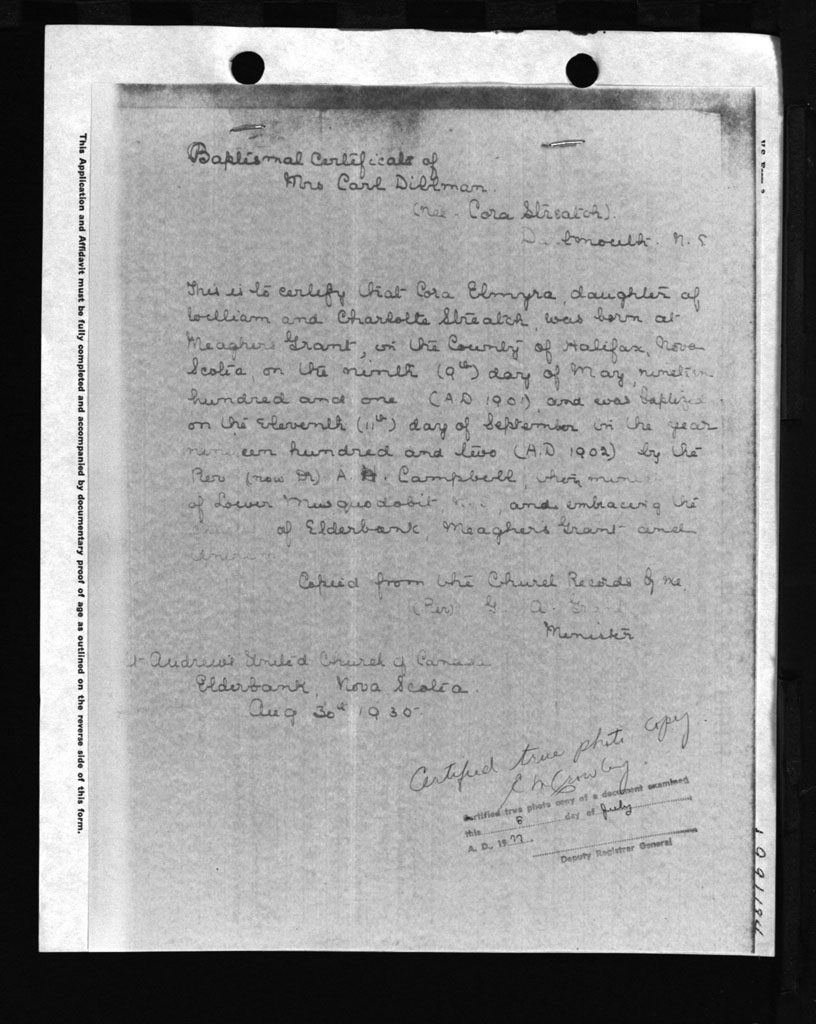 Baptismal Certificate of
Mrs Carl Dillman.
(nee. Cora Streatch).
N. S
This is to certify that Cora Elmyra, daughter of
William and Charlotte Streatch, was born at
Meaghers Grant, in the County of Halifax, Nova
Scotia, on the ninth (9th) day of May, nineteen
hundred and one (A.D 1901), and was baptized
on the Eleventh (11th) day of September in the year
nineteen hundred and two (A.D. 1902) by the
Rev (now Dr) A. H. Campbell, then
of Lower Musquodobit and embracing the
of Elderbank, Meaghers Grant and
Copied from the Church Records by me,
(Rev) G. A.
Minister
St Andrew's United Church of Canada
Elderbank, Nova Scotia.
Aug 30th 1930
Certified true photo copy.
Certified true photo copy of a document examined
this 8 day of July
A. D. 1977.
Deputy Registrar General
This Application and Affidavit must be fully completed and accompanied by documentary proof of age as outlined on the reverse side of this form.